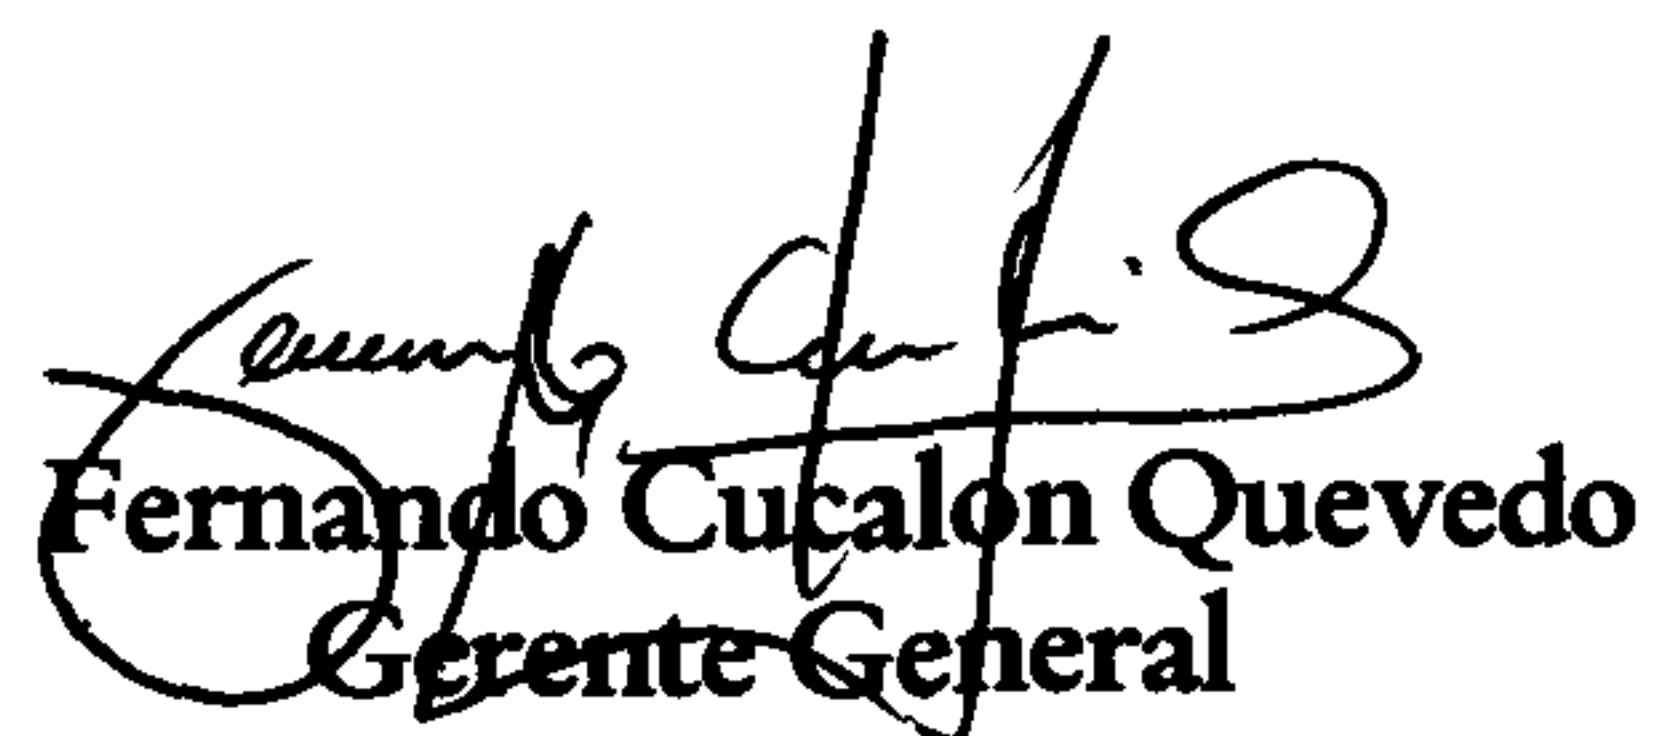 Fernando Cucalon Quevedo
Gerente General